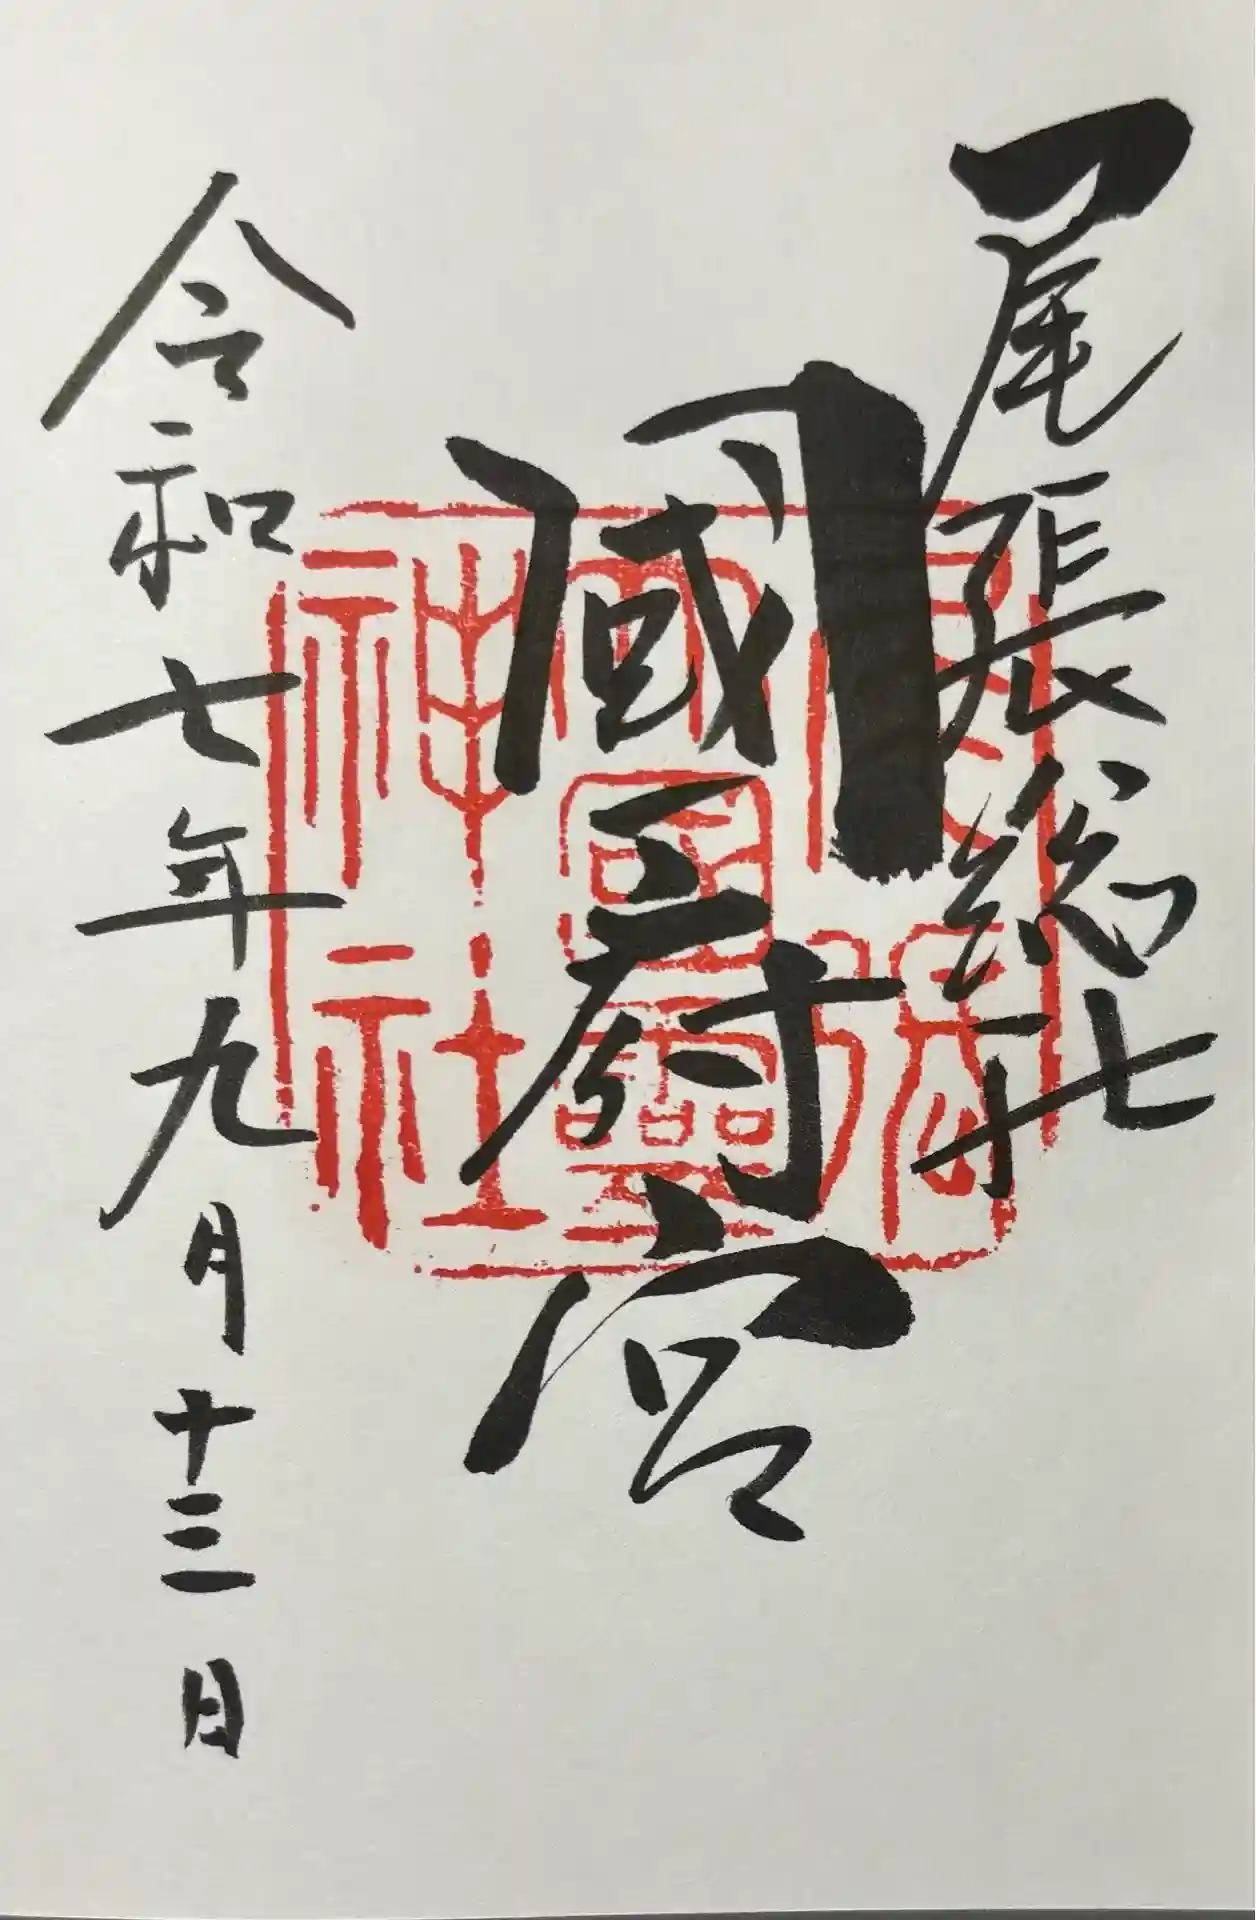 尾張総社
國府宮
令和七年九月十三日
尾張
大國靈
神社